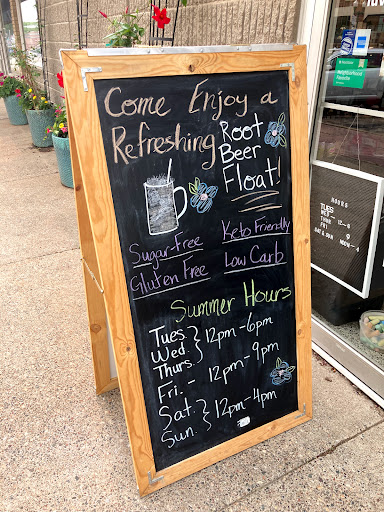 Come Enjoy a
Refreshing
Root
Beer
Float!
Sugar-Free
Keto Friendly
Gluten Free
Low Carb
Summer Hours
Tues.
Wed. } 12pm-6pm
Thurs.
Fri. - 12pm-9pm
Sat. } 12pm-4pm
Sun.
HOURS
TUES
WED
THUR
FRI